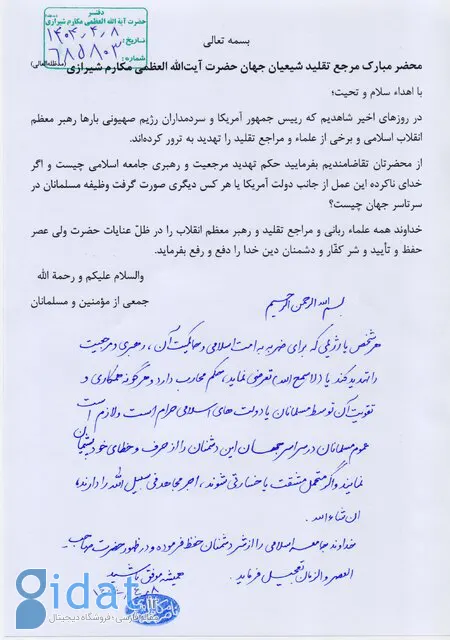 دفتر
حضرت آیة الله العظمی مکارم شیرازی
تاریخ: ۱۴۰۴-۴-۸
شماره: ۶۸۵۸۰۳
بسمه تعالی
محضر مبارک مرجع تقلید شیعیان جهان حضرت آیت‌الله العظمی مکارم شیرازی (مدظله‌العالی)
با اهداء سلام و تحیت؛
در روزهای اخیر شاهدیم که رییس جمهور آمریکا و سردمداران رژیم صهیونی بارها رهبر معظم
انقلاب اسلامی و برخی از علماء و مراجع تقلید را تهدید به ترور کرده‌اند.
از محضرتان تقاضامندیم بفرمایید حکم تهدید مرجعیت و رهبری جامعه اسلامی چیست و اگر
خدای ناکرده این عمل از جانب دولت آمریکا یا هر کس دیگری صورت گرفت وظیفه مسلمانان در
سرتاسر جهان چیست؟
خداوند همه علماء ربانی و مراجع تقلید و رهبر معظم انقلاب را در ظلّ عنایات حضرت ولی عصر
حفظ و تأیید و شر کفّار و دشمنان دین خدا را دفع و رفع بفرماید.
والسلام علیکم و رحمة الله
جمعی از مؤمنین و مسلمانان
بسم الله الرحمن الرحیم
هر شخص یا رژیمی که برای ضربه به امت اسلامی و حاکمیت آن، رهبری و مرجعیت
را تهدید کند یا (لاسمح الله) تعرضی نماید، حکم محارب دارد و هرگونه همکاری و
تقویت آن توسط مسلمانان یا دولت های اسلامی حرام است و لازم است
عموم مسلمانان در سراسر جهان این دشمنان را از حرف و خطای خود پشیمان
نمایند و اگر متحمل مشقت یا خسارتی شوند، اجر مجاهد فی سبیل الله را دارند،
ان شاء الله.
خداوند جامعه اسلامی را از شر دشمنان حفظ فرموده و در ظهور حضرت صاحب
العصر و الزمان تعجیل فرماید.
همیشه موفق باشید
gidat
جهان فارسی، فروشگاه دیجیتال